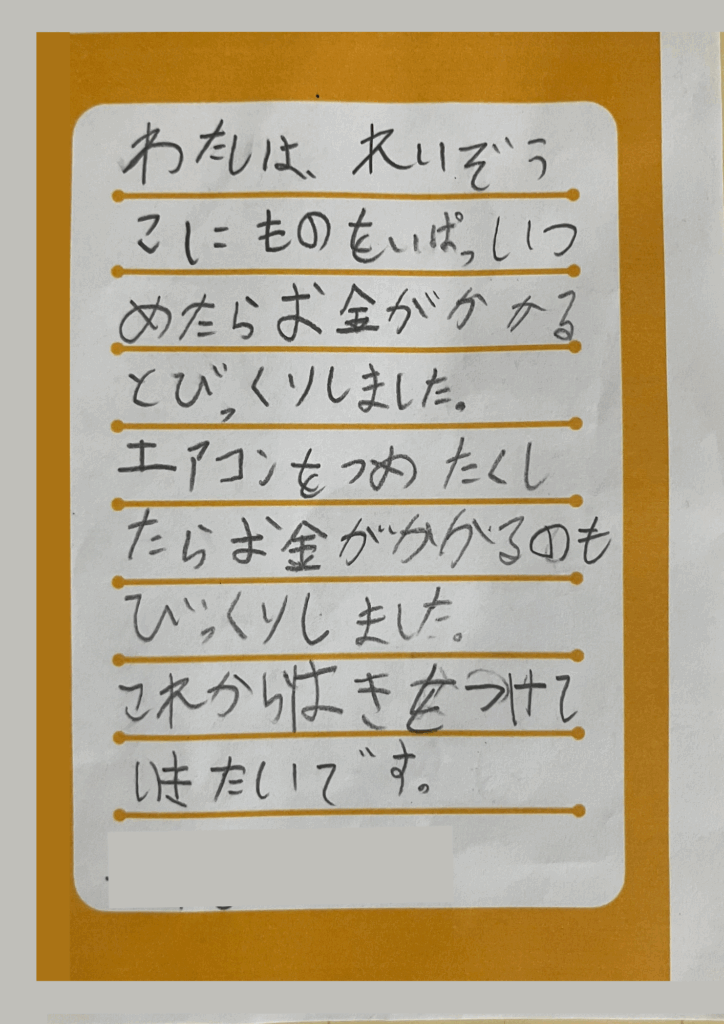 わたしは、れいぞう
こしにものをいぱっしいつ
めたらお金がかかる
とびっくりしました。
エアコンをつめたくし
たらお金がかかるのも
びっくりしました。
これからはきをつけて
いきたいです。